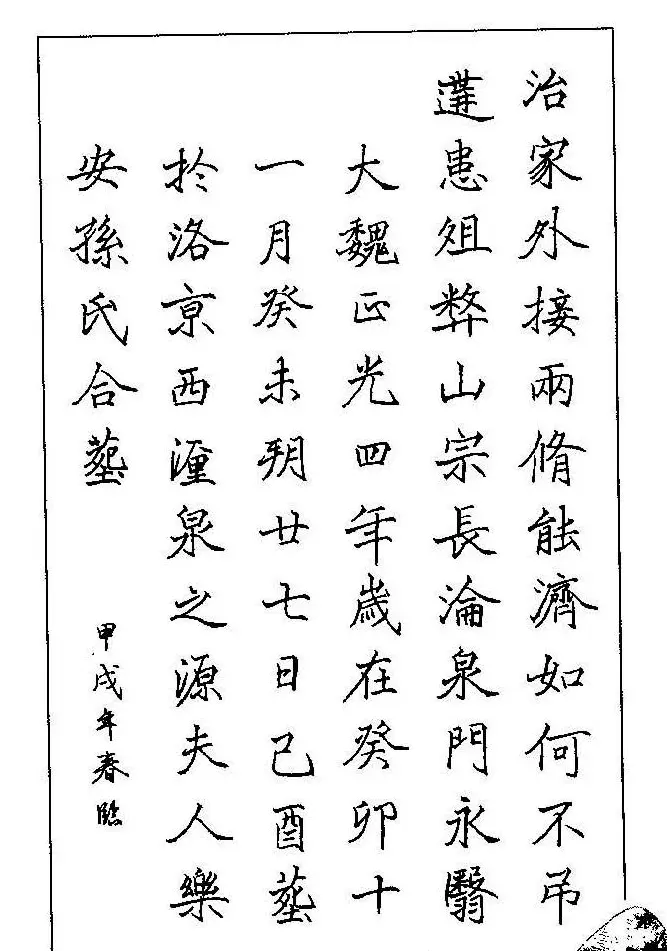 治家外接兩脩能濟如何不弔
遘患殂弊山宗長淪泉門永翳
大魏正光四年歲在癸卯十
一月癸未朔廿七日己酉塟
於洛京西瀍泉之源夫人樂
安孫氏合塟
甲戌年春臨